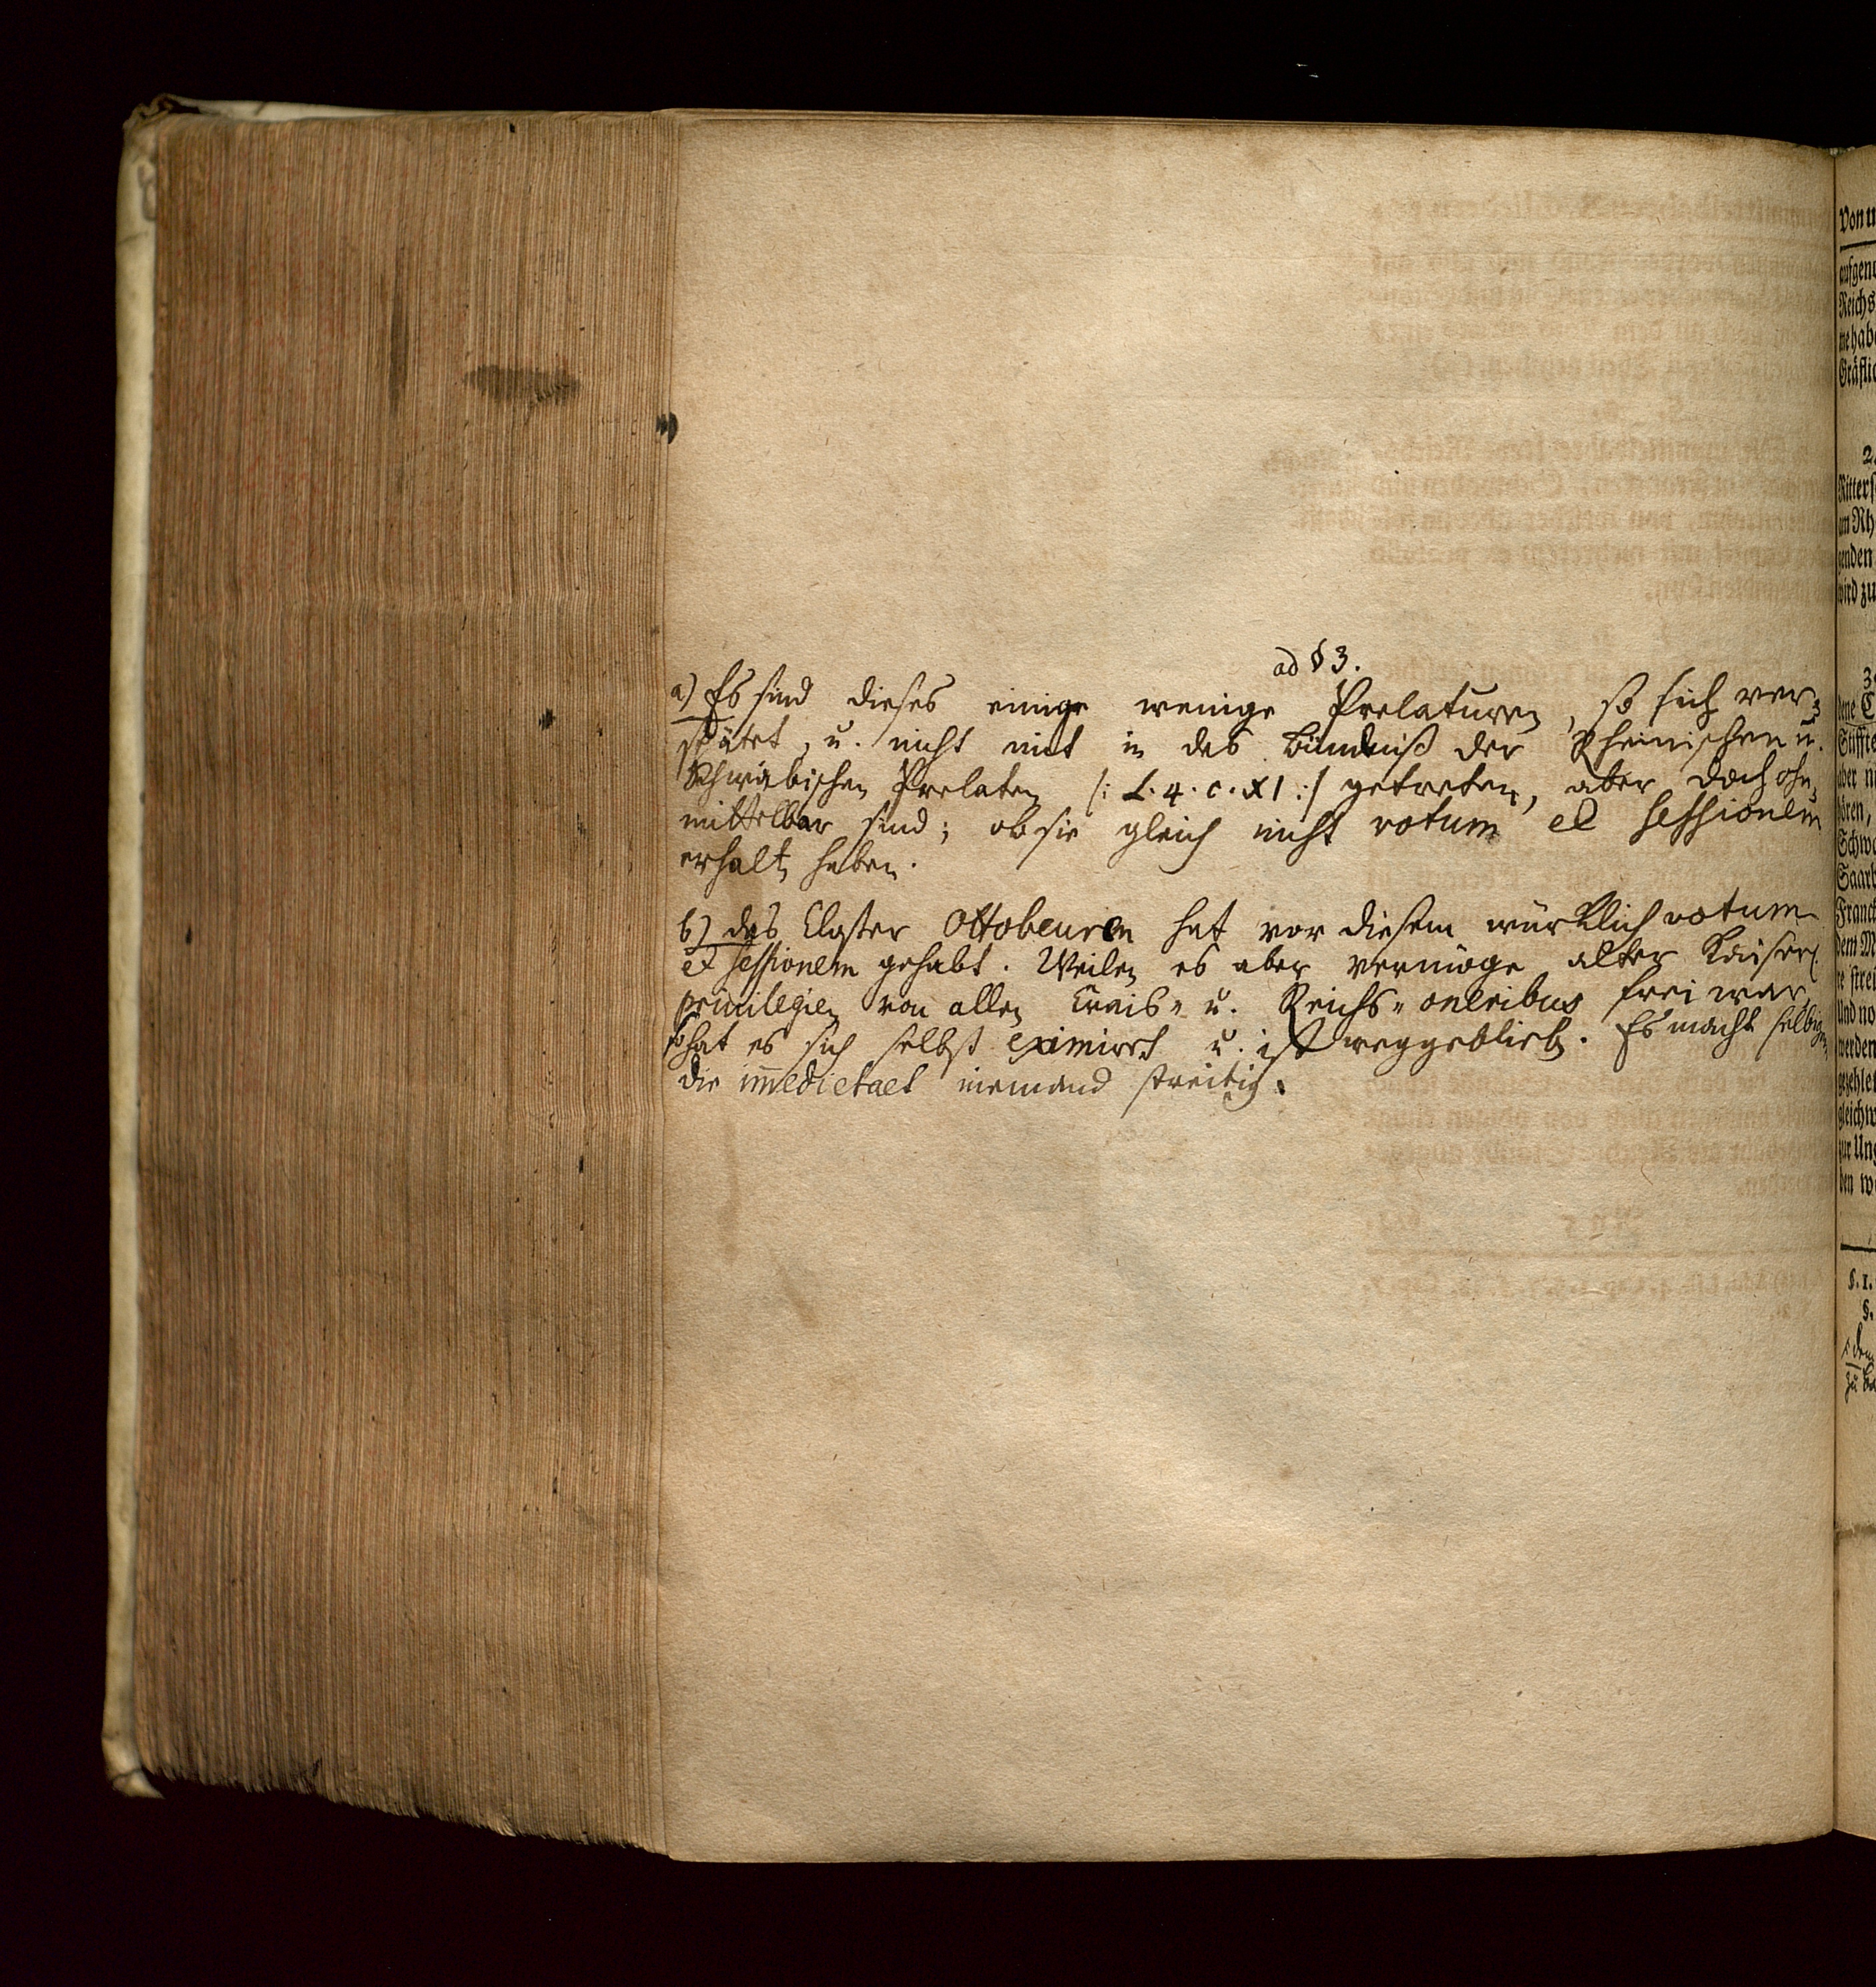 ad § 3.
a) Es sind dieses einige wenige Prelaturen, so sich ver=
spätet, u. nicht mit in das Bündniß der Rheinischen u.
Schwäbischen Prelaten /: L. 4. c. XI :/ getreten, aber doch ohn=
mittelbar sind; ob sie gleich nicht votum et sessionem
erhalt haben.
b) das Closter Ottobeuren hat vor diesem würcklich votum
et sessionem gehabt. Weilen es aber vermöge alter Kaiserl.
privilegien von allen Crais= u. Reichs= oneribus frei war,
so hat es sich selbst eximirt u. ist weggeblieb. Es macht selbigen
die immedietaet niemand streitig.
Von u
aufgen
Reichs
me hab
Gräflic
2.
Ritters
am Rh
genden
wird zu
3.
Stiffte
aber n
hören,
Schwa
Saarb
Franck
dem M
re strei
Und no
werden
gezehlet
gleichw
zur Un
den w
§. 1.
§.